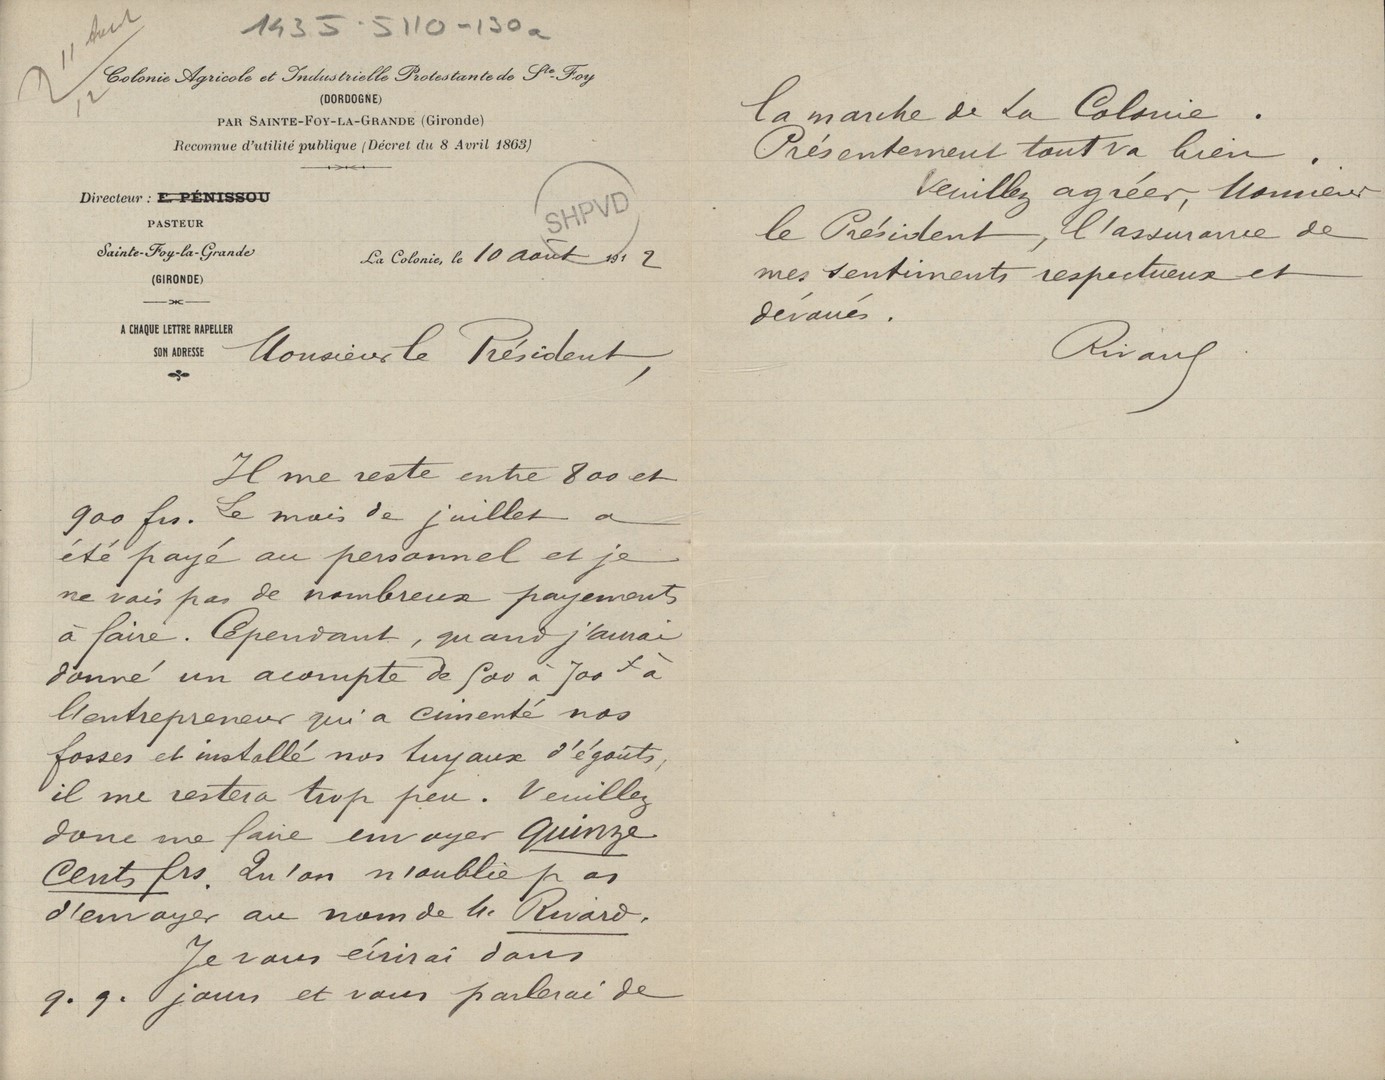 1435.5110-130a
11 Août
12
Colonie Agricole et Industrielle Protestante de Ste-Foy
(DORDOGNE)
PAR SAINTE-FOY-LA-GRANDE (Gironde)
Reconnue d'utilité publique (Décret du 8 Avril 1863)
Directeur : E. PÉNISSOU
PASTEUR
Sainte-Foy-la-Grande
(GIRONDE)
A CHAQUE LETTRE RAPELLER
SON ADRESSE
SHPVD
La Colonie, le 10 août 1912
Monsieur le Président,
Il me reste entre 800 et
900 frs. Le mois de juillet a
été payé au personnel et je
ne vois pas de nombreux payements
à faire. Cependant, quand j'aurai
donné un acompte de 600 à 700 f à
l'entrepreneur qui a cimenté nos
fosses et installé nos tuyaux d'égouts,
il me restera trop peu. Veuillez
donc me faire envoyer quinze
cents frs. Qu'on n'oublie pas
d'envoyer au nom de M. Rivard.
Je vous écrirai dans
q. q. jours et vous parlerai de
la marche de La Colonie.
Présentement tout va bien.
Veuillez agréer, Monsieur
le Président, l'assurance de
mes sentiments respectueux et
dévoués.
Rivard